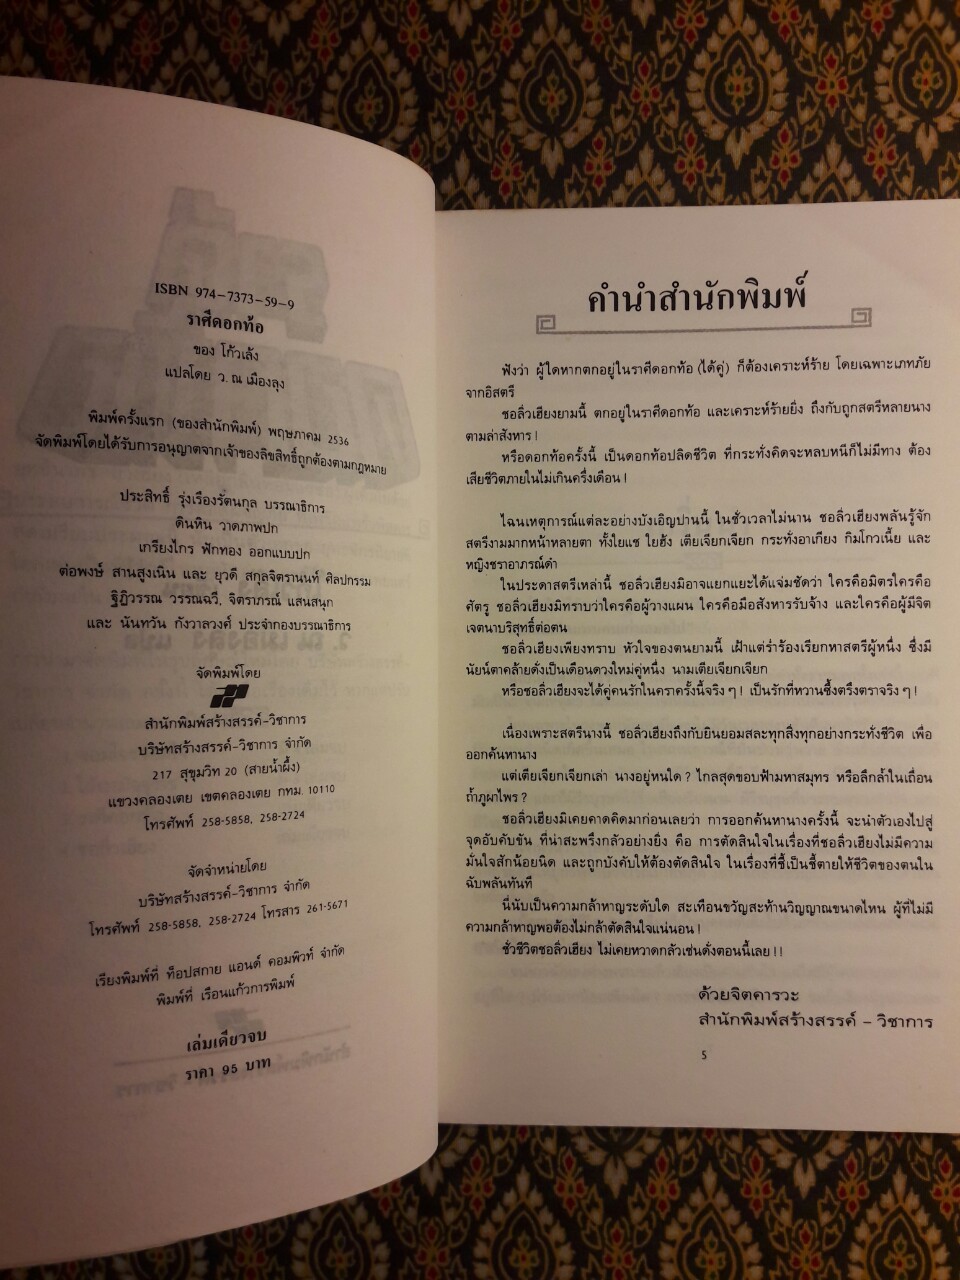 ISBN 974-7373-59-9
ราศีดอกท้อ
ของ โก้วเล้ง
แปลโดย ว. ณ เมืองลุง
พิมพ์ครั้งแรก (ของสำนักพิมพ์) พฤษภาคม 2536
จัดพิมพ์โดยได้รับการอนุญาตจากเจ้าของลิขสิทธิ์ถูกต้องตามกฎหมาย
ประสิทธิ์ รุ่งเรืองรัตนกุล บรรณาธิการ
ดินหิน วาดภาพปก
เกรียงไกร ฟักทอง ออกแบบปก
ต่อพงษ์ สานสูงเนิน และ ยุวดี สกุลจิตรานนท์ ศิลปกรรม
ฐิฏิวรรณ วรรณฉวี, จิตราภรณ์ แสนสนุก
และ นันทวัน กังวาลวงศ์ ประจำกองบรรณาธิการ
จัดพิมพ์โดย
สำนักพิมพ์สร้างสรรค์-วิชาการ
บริษัทสร้างสรรค์-วิชาการ จำกัด
217 สุขุมวิท 20 (สายน้ำผึ้ง)
แขวงคลองเตย เขตคลองเตย กทม. 10110
โทรศัพท์ 258-5858, 258-2724
จัดจำหน่ายโดย
บริษัทสร้างสรรค์-วิชาการ จำกัด
โทรศัพท์ 258-5858, 258-2724 โทรสาร 261-5671
เรียงพิมพ์ที่ ท็อปสกาย แอนด์ คอมพิวท์ จำกัด
พิมพ์ที่ เรือนแก้วการพิมพ์
เล่มเดียวจบ
ราคา 95 บาท
คำนำสำนักพิมพ์
ฟังว่า ผู้ใดหากตกอยู่ในราศีดอกท้อ (ได้คู่) ก็ต้องเคราะห์ร้าย โดยเฉพาะเภทภัย
จากอิสตรี
ชอลิ่วเฮียงยามนี้ ตกอยู่ในราศีดอกท้อ และเคราะห์ร้ายยิ่ง ถึงกับถูกสตรีหลายนาง
ตามล่าสังหาร !
หรือดอกท้อครั้งนี้ เป็นดอกท้อปลิดชีวิต ที่กระทั่งคิดจะหลบหนีก็ไม่มีทาง ต้อง
เสียชีวิตภายในไม่เกินครึ่งเดือน !
ไฉนเหตุการณ์แต่ละอย่างบังเอิญปานนี้ ในชั่วเวลาไม่นาน ชอลิ่วเฮียงพลันรู้จัก
สตรีงามมากหน้าหลายตา ทั้งใยแซ ใยฮ้ง เตียเจียกเจียก กระทั่งอาเกียง กิมโกวเนี้ย และ
หญิงชราอาภรณ์ดำ
ในประดาสตรีเหล่านี้ ชอลิ่วเฮียงมิอาจแยกแยะได้แจ่มชัดว่า ใครคือมิตรใครคือ
ศัตรู ชอลิ่วเฮียงมิทราบว่าใครคือผู้วางแผน ใครคือมือสังหารรับจ้าง และใครคือผู้มีจิต
เจตนาบริสุทธิ์ต่อตน
ชอลิ่วเฮียงเพียงทราบ หัวใจของตนยามนี้ เฝ้าแต่ร่ำร้องเรียกหาสตรีผู้หนึ่ง ซึ่งมี
นัยน์ตาคล้ายดั่งเป็นเดือนดวงใหม่คู่หนึ่ง นามเตียเจียกเจียก
หรือชอลิ่วเฮียงจะได้คู่คนรักในคราครั้งนี้จริง ๆ ! เป็นรักที่หวานซึ้งตรึงตราจริง ๆ !
เนื่องเพราะสตรีนางนี้ ชอลิ่วเฮียงถึงกับยินยอมสละทุกสิ่งทุกอย่างกระทั่งชีวิต เพื่อ
ออกค้นหานาง
แต่เตียเจียกเจียกเล่า นางอยู่หนใด ? ไกลสุดขอบฟ้ามหาสมุทร หรือลึกล้ำในเถื่อน
ถ้ำภูผาไพร ?
ชอลิ่วเฮียงมิเคยคาดคิดมาก่อนเลยว่า การออกค้นหานางครั้งนี้ จะนำตัวเองไปสู่
จุดอับคับขัน ที่น่าสะพรึงกลัวอย่างยิ่ง คือ การตัดสินใจในเรื่องที่ชอลิ่วเฮียงไม่มีความ
มั่นใจสักน้อยนิด และถูกบังคับให้ต้องตัดสินใจ ในเรื่องที่ชี้เป็นชี้ตายให้ชีวิตของตนใน
ฉับพลันทันที
นี่นับเป็นความกล้าหาญระดับใด สะเทือนขวัญสะท้านวิญญาณขนาดไหน ผู้ที่ไม่มี
ความกล้าหาญพอต้องไม่กล้าตัดสินใจแน่นอน !
ชั่วชีวิตชอลิ่วเฮียง ไม่เคยหวาดกลัวเช่นดั่งตอนนี้เลย ! !
ด้วยจิตคารวะ
สำนักพิมพ์สร้างสรรค์ – วิชาการ
5